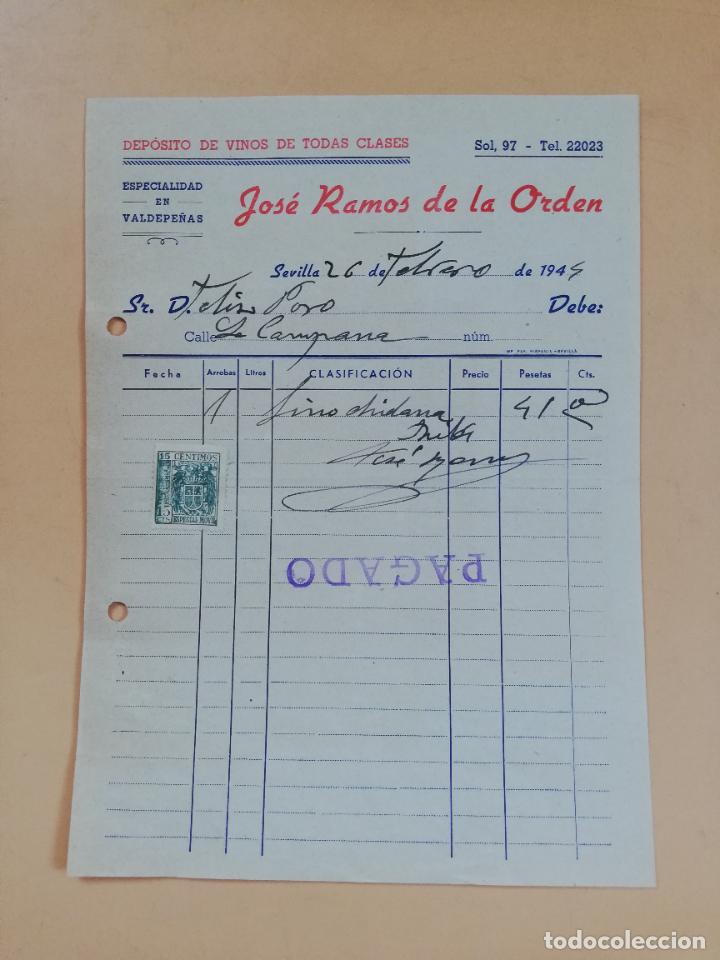 DEPÓSITO DE VINOS DE TODAS CLASES Sol, 97 - Tel. 22023
ESPECIALIDAD
EN
VALDEPEÑAS
José Ramos de la Orden
Sevilla 26 de Febrero de 1944
Sr. D. Poro Debe:
Calle La Campana núm.
Fecha Arrobas Litros CLASIFICACIÓN Precio Pesetas Cts.
1 fino 41 0
José
15 CENTIMOS
15
CTS
ESPECIAL MOVIL
PAGADO
todocoleccion
todocoleccion.net